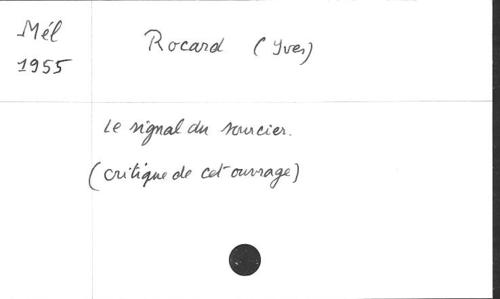 Mél
1955
Rocard (Yves)
Le signal du sourcier.
(critique de cet ouvrage)